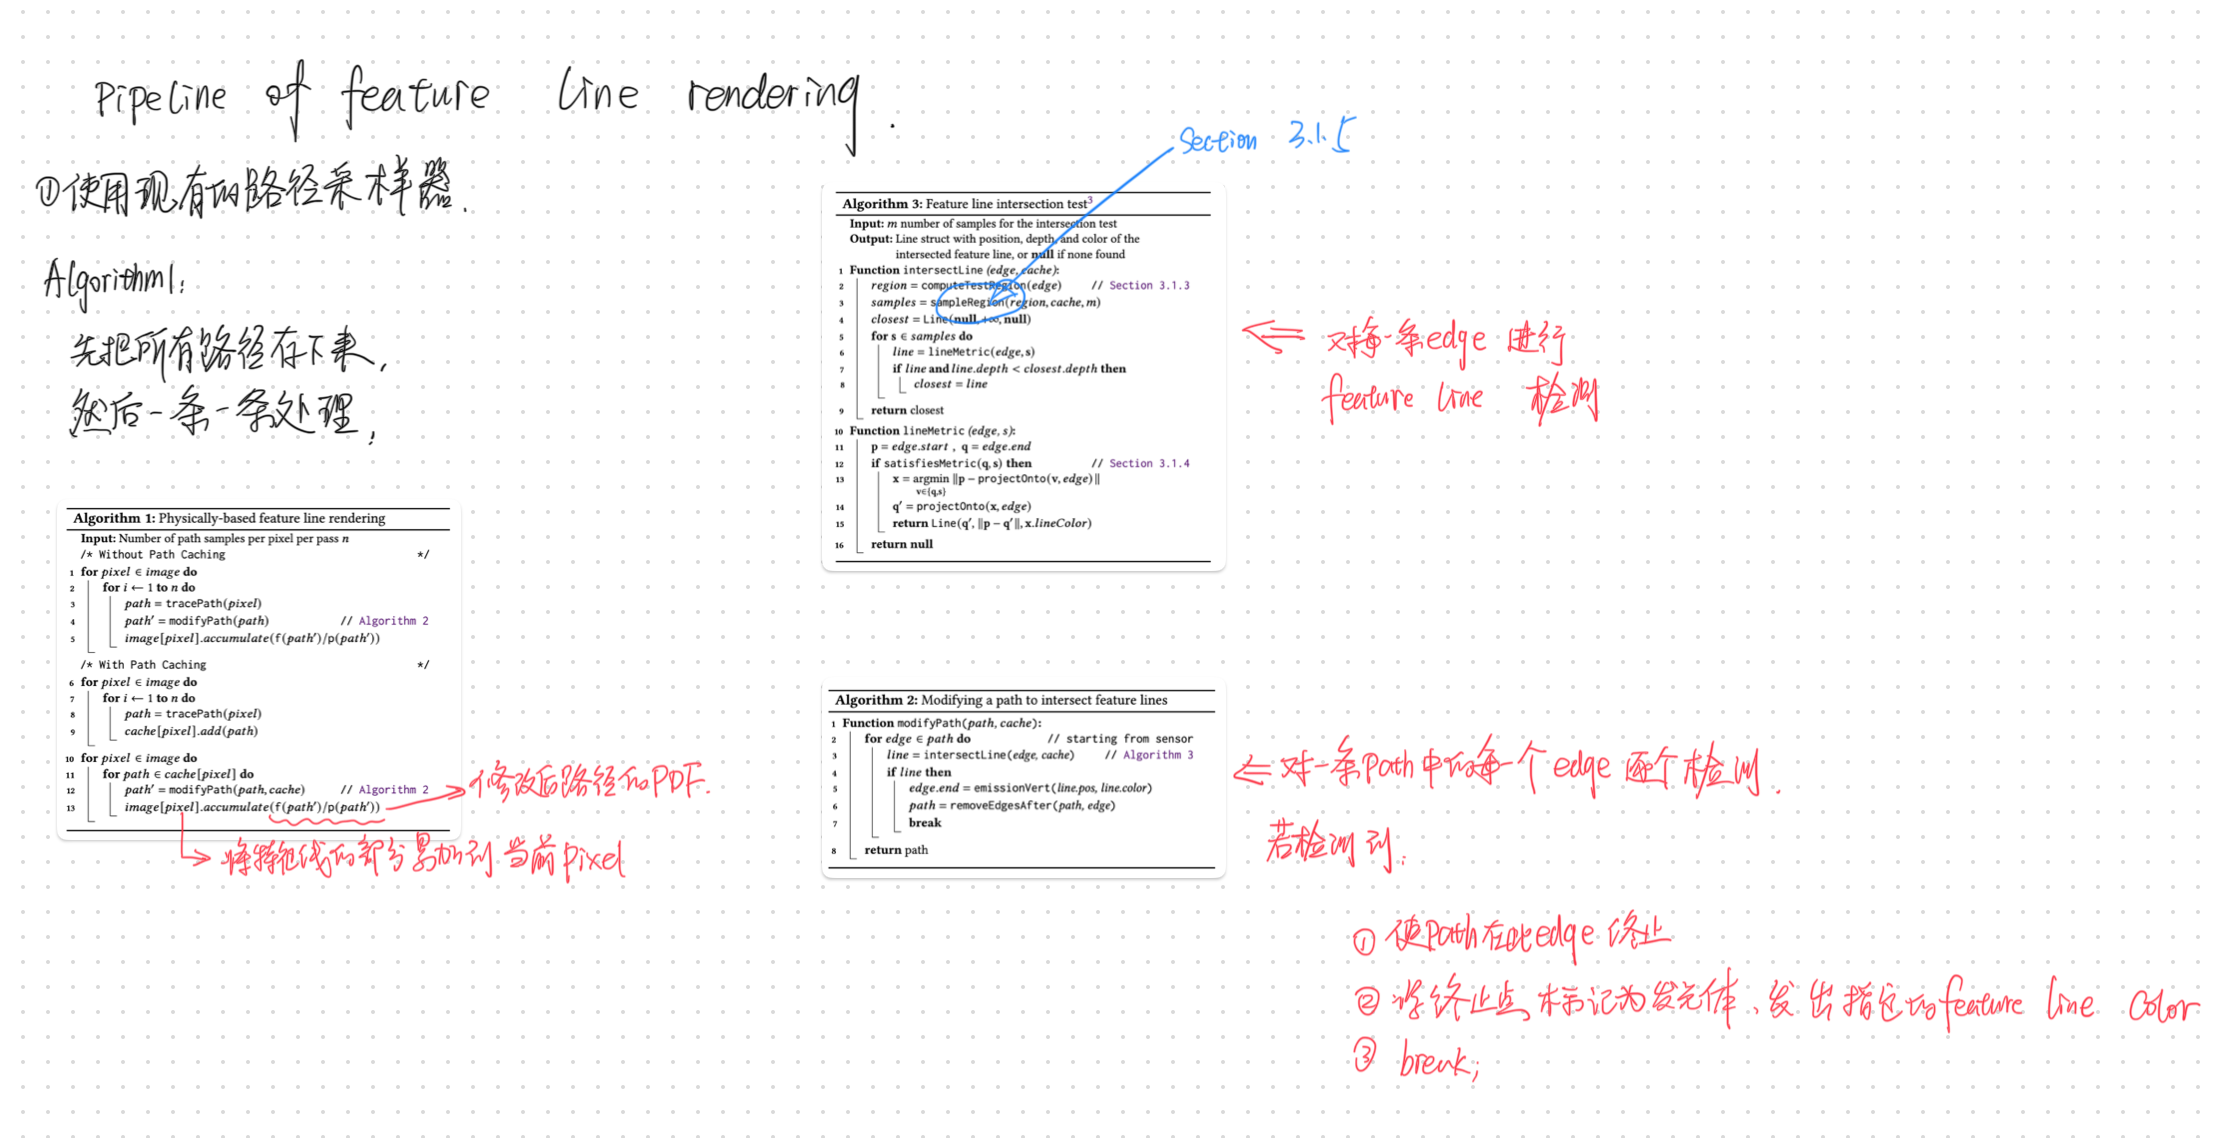 Pipeline of feature line rendering.
①使用现有的路径采样器.
Algorithm1:
先把所有路径存下来,
然后一条一条处理,
Algorithm 1: Physically-based feature line rendering
Input: Number of path samples per pixel per pass n
/* Without Path Caching */
1 for pixel ∈ image do
2 for i ← 1 to n do
3 path = tracePath(pixel)
4 path′ = modifyPath(path) // Algorithm 2
5 image[pixel].accumulate(f(path′)/p(path′))
/* With Path Caching */
6 for pixel ∈ image do
7 for i ← 1 to n do
8 path = tracePath(pixel)
9 cache[pixel].add(path)
10 for pixel ∈ image do
11 for path ∈ cache[pixel] do
12 path′ = modifyPath(path, cache) // Algorithm 2
13 image[pixel].accumulate(f(path′)/p(path′))
修改后路径的PDF.
将特征线的部分累加到当前pixel
Section 3.1.5
Algorithm 3: Feature line intersection test3
Input: m number of samples for the intersection test
Output: Line struct with position, depth, and color of the
intersected feature line, or null if none found
1 Function intersectLine (edge, cache):
2 region = computeTestRegion(edge) // Section 3.1.3
3 samples = sampleRegion(region, cache, m)
4 closest = Line(null, +∞, null)
5 for s ∈ samples do
6 line = lineMetric(edge, s)
7 if line and line.depth < closest.depth then
8 closest = line
9 return closest
10 Function lineMetric (edge, s):
11 p = edge.start , q = edge.end
12 if satisfiesMetric(q, s) then // Section 3.1.4
13 x = argmin ||p − projectOnto(v, edge)||
v∈{q,s}
14 q′ = projectOnto(x, edge)
15 return Line(q′, ||p − q′||, x.lineColor)
16 return null
⇐ 对每一条edge 进行
feature line 检测
Algorithm 2: Modifying a path to intersect feature lines
1 Function modifyPath(path, cache):
2 for edge ∈ path do // starting from sensor
3 line = intersectLine(edge, cache) // Algorithm 3
4 if line then
5 edge.end = emissionVert(line.pos, line.color)
6 path = removeEdgesAfter(path, edge)
7 break
8 return path
⇐ 对一条path中的每一个edge 逐个检测.
若检测到:
① 使path在此edge 终止
② 将终止点标记为发光体、发出指定的feature line color
③ break;